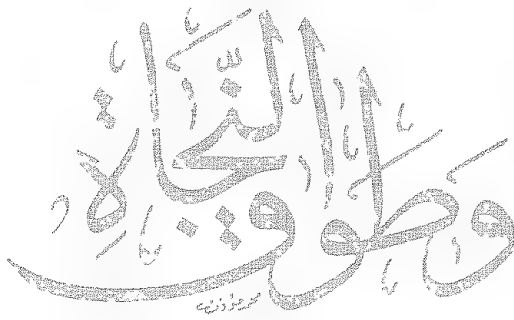 وطوق النجاة